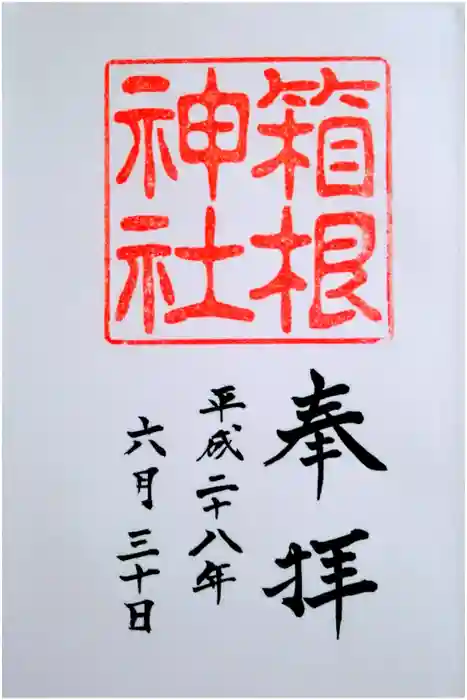 箱根
神社
奉拝
平成二十八年
六月三十日